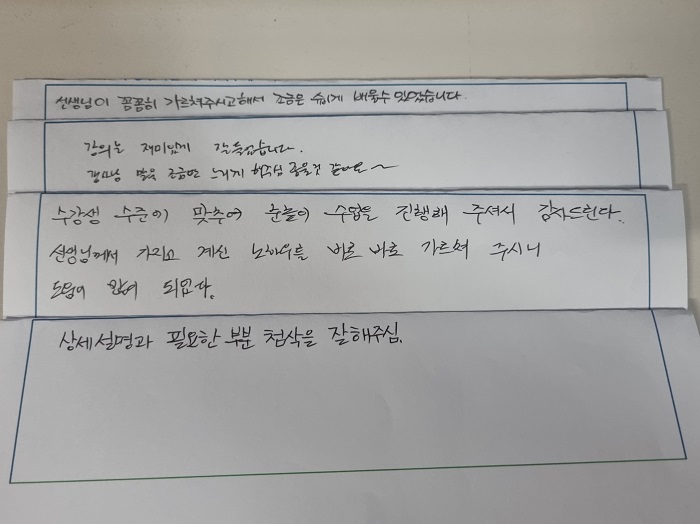 선생님이 꼼꼼히 가르쳐주시고해서 조금은 쉽게 배울수 있었습니다.
강의는 재미있게 잘 들었습니다.
말을 조금만 느리게 해주심 좋을것 같아요~
수강생 수준이 맞추어 수업을 진행해 주셔서 감사드린다.
선생님께서 가지고 계신 노하우를 바로 바로 가르쳐 주시니
도움이 많이 되었다.
상세설명과 필요한 부분 첨삭을 잘해주심.